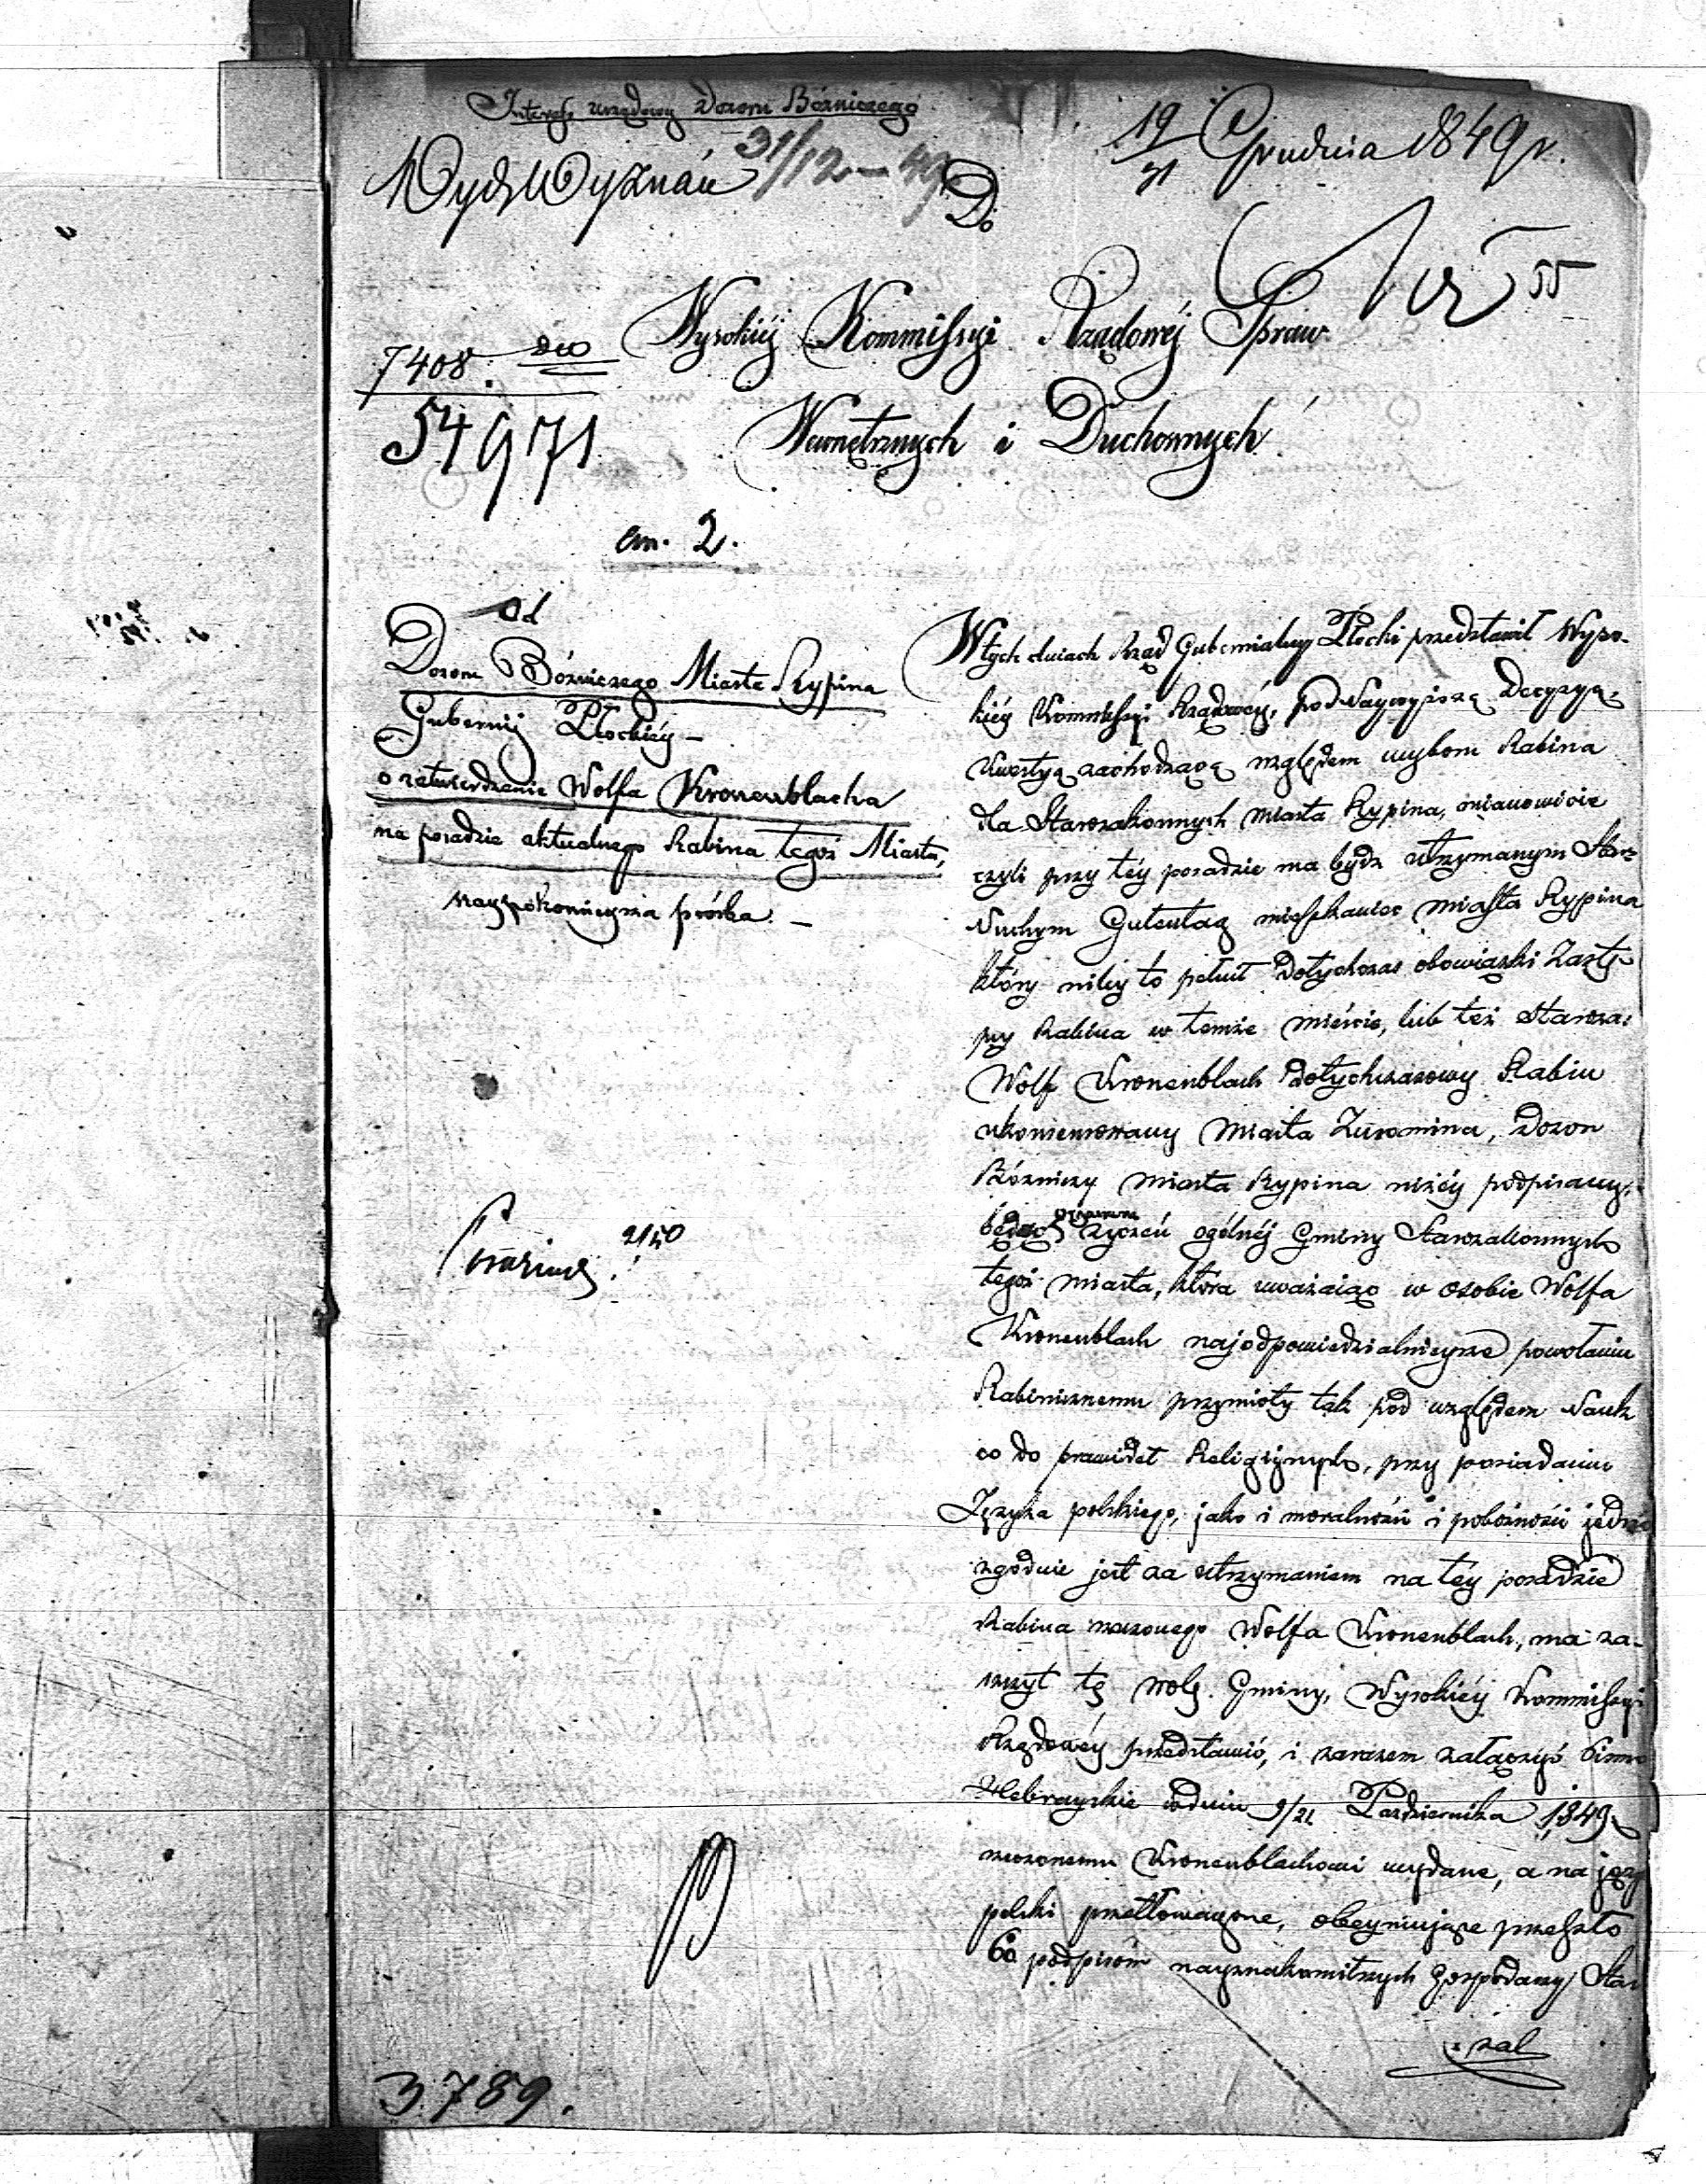 Interes urzędowy Dozoru Bóźniczego
Wydz Wyznań 31/12 – 49
19/31 Grudnia 1849 r.
Do
55
Wysokiéj Kommissyi Rządowéj Spraw
7408.
54971
Wewnętrznych i Duchownych
an. 2.
Od
Dozoru Bóźniczego Miasta Rypina
Gubernij Płockiéy –
o zatwierdzenie Wolfa Kronenblacha
na posadzie aktualnego Rabina tegoż Miasta,
naypokornieysza prośba. –
W tych dniach Rząd Gubernialny Płocki przedstawił Wyso-
kiéy Kommissyi Rządowéy, pod Naywyższą Decyzyą,
kwestyą zachodzącą względem wyboru Rabina
dla Starozakonnych miasta Rypina, mianowicie
czyli przy téy posadzie ma bydź utrzymanym Star:
Nuchym Gutentag mieszkaniec miasta Rypina
który niby to pełnił dotychczas obowiązki Zastę-
pcy Rabina w temże mieście, lub też Staroza:
Wolf Kronenblach dotychczasowy Rabin
miasta Żuromina, Dozor
Bóźniczy miasta Rypina niżéy podpisany,
będąc życzeń ogólnéj Gminy Starozakonnych
tegoż miasta, która uważając w osobie Wolfa
Kronenblach najodpowiedzialnieysze powołaniu
Rabinicznemu przymioty tak pod względem Nauk
co do prawideł Religijnych, przy posiadaniu
Języka polskiego, jako i moralności i pobożności jedno
zgodnie jest za utrzymaniem na tey posadzie
Rabina rzeczonego Wolfa Kronenblach, ma za-
szczyt tę wolę Gminy, Wysokiéy Kommissyi
Rządowéy przedstawić, i zarazem załączyć Pismo
Hebrayskie w dniu 9/21 Października 1849 r
rzeczonemu Kronenblachowi wydane, a na jęz
polski przetłomaczone, obeymujące przeszło
60 podpisów nayznakomitszych Gospodarzy Star
zak
2/50
3789.